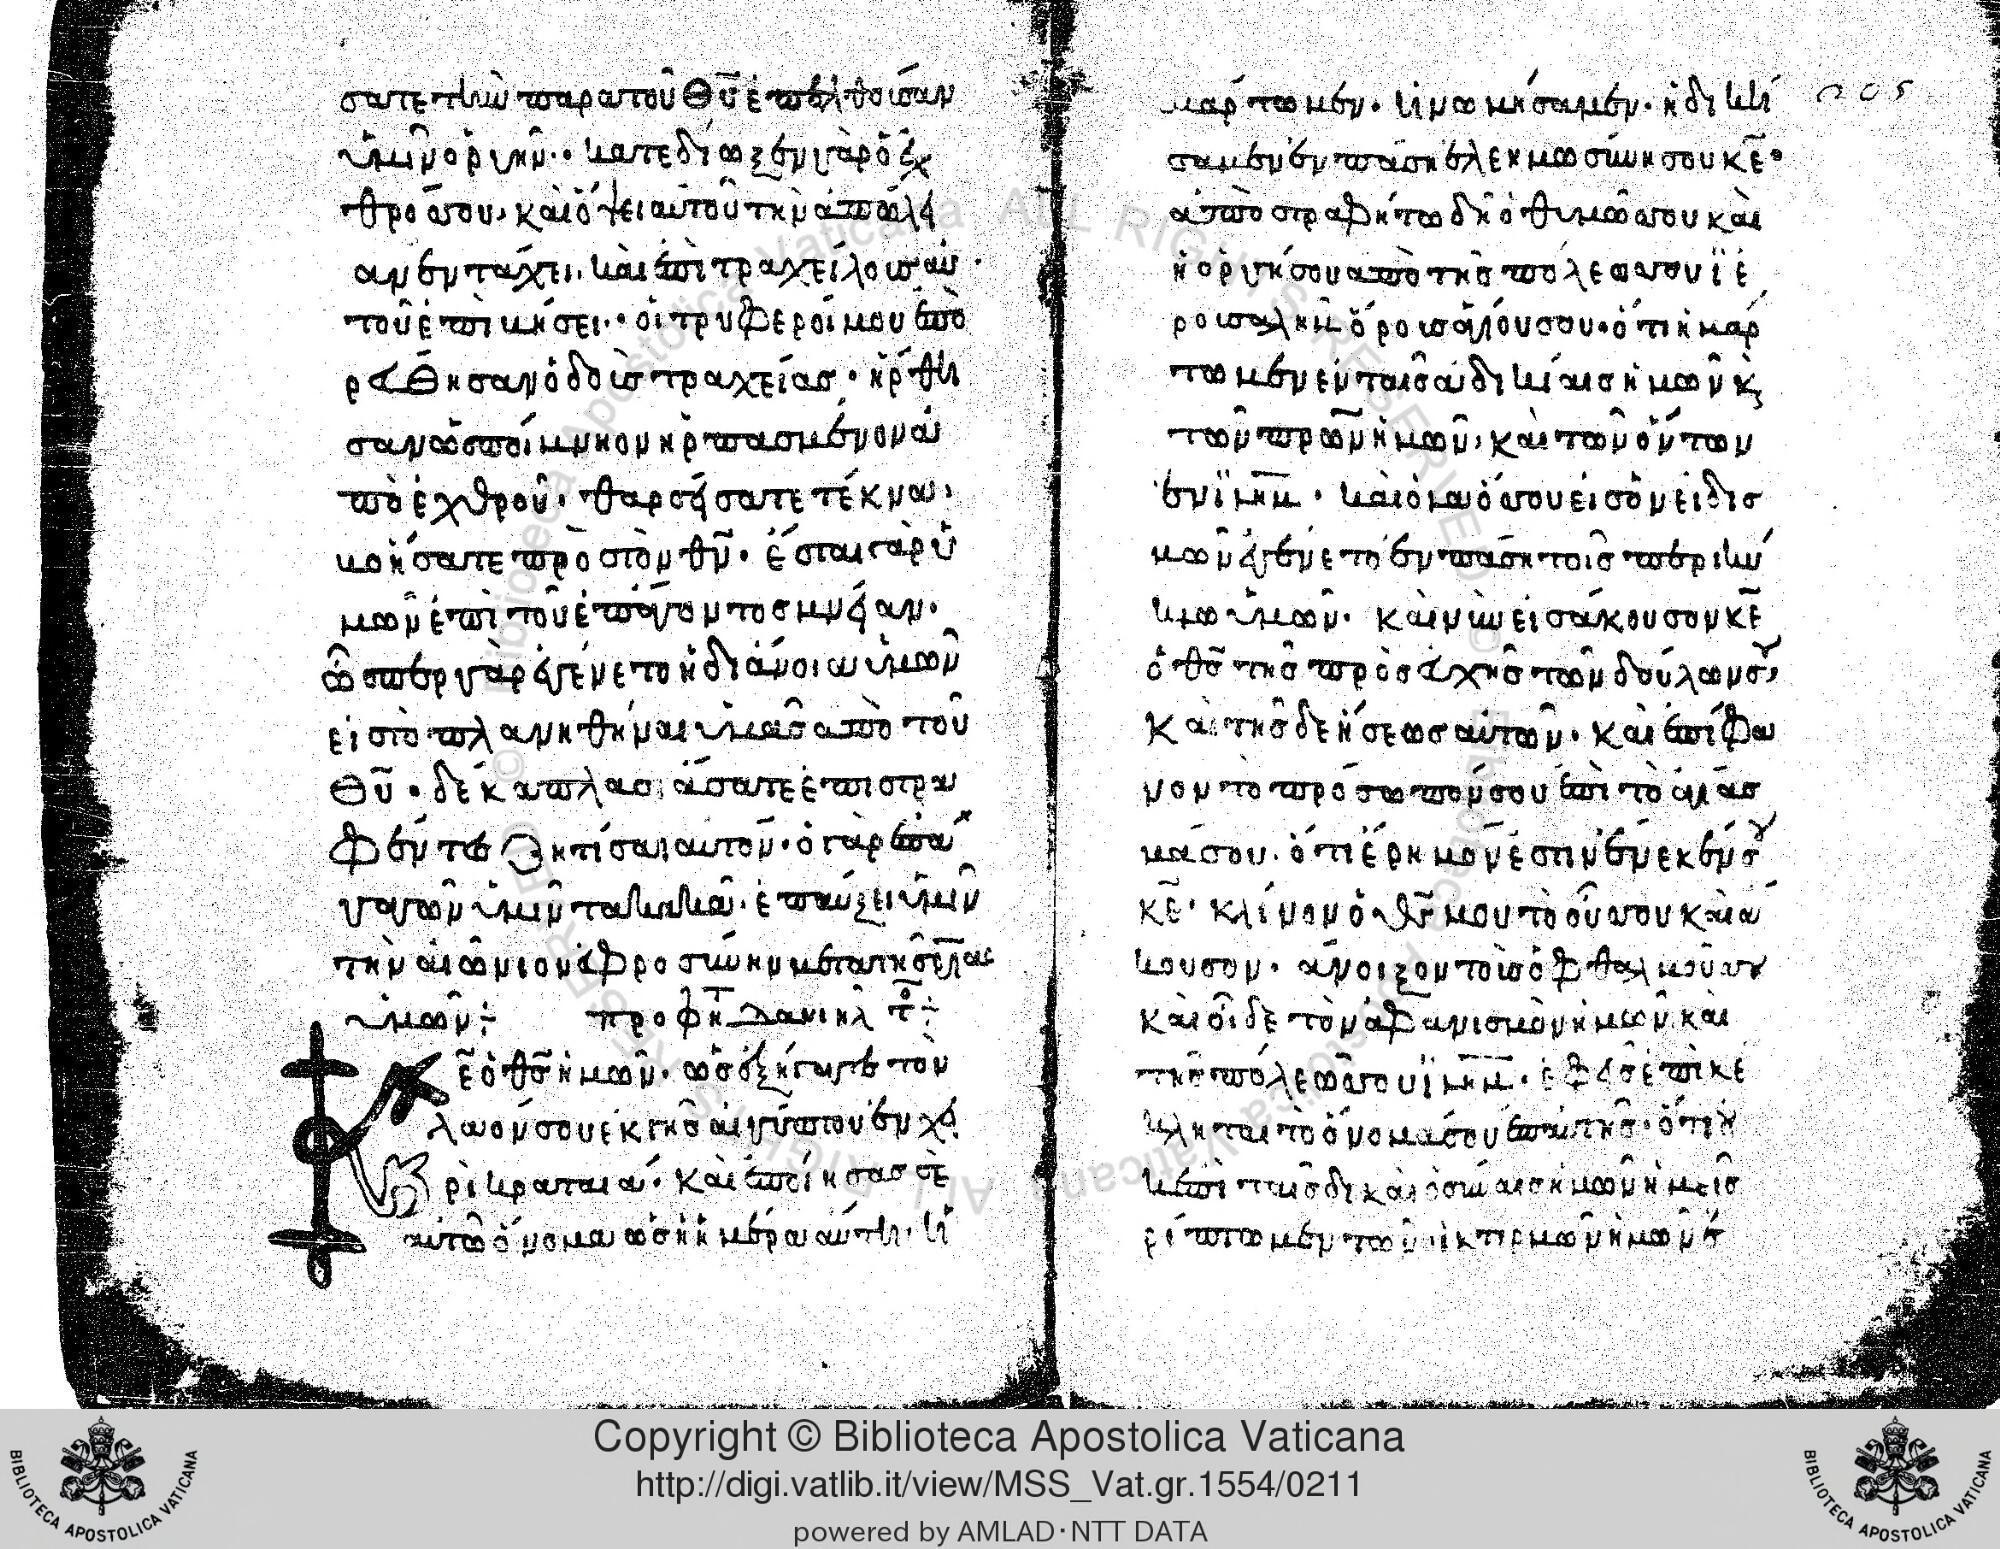 σατε τὴν παρὰ τοῦ θῦ ἐπελθοῦσαν
ὑμῖν ὀργήν· κατεδίωξεν γὰρ ὁ ἐχ
θρός σου, καὶ ὄψει αὐτοῦ τὴν ἀπώλει
αν ἐν τάχει, καὶ ἐπὶ τραχήλους αὐ
τοῦ ἐπιβήσει· οἱ τρυφεροί μου ἐπο
ρεύθησαν ὁδοὺς τραχείας· ἤρθη
σαν ὡς ποίμνιον ἡρπασμένον ὑ
πὸ ἐχθροῦ· θαρσήσατε τέκνα,
βοήσατε πρὸς τὸν θν· ἔσται γὰρ ὑ
μῶν ἐπὶ τοῦ ἐπάγοντος μνεῖαν·
ὥσπερ γὰρ ἐγένετο ἡ διάνοια ὑμῶν
εἰς τὸ πλανηθῆναι ὑμᾶς ἀπὸ τοῦ
θῦ· δεκαπλασιάσατε ἐπιστρα
φέντες ζητῆσαι αὐτόν· ὁ γὰρ ἐπα
γαγὼν ὑμῖν τὰ κακά· ἐπάξει ὑμῖν
τὴν αἰώνιον εὐφροσύνην μετὰ τῆς σρίας
ὑμῶν÷ προφητ Δανιηλ
κε ὁ θς ἡμῶν· ὡς ἐξήγαγες τὸν
λαόν σου ἐκ γῆς αἰγύπτου ἐν χει
ρὶ κραταιᾷ· καὶ ἐποίησας σε
αυτῶ ὄνομα ὡς ἡ ἡμέρα αὕτη· ἡ
μάρτωμεν· ἠνωμήσαμεν· ἠδική
σαμεν ἐν πάση ἐλεημωσύνη σου κε·
ἀποστραφήτω δὴ ὁ θυμός σου καὶ
ἡ ὀργή σου ἀπὸ τῆς πόλεώς σου ἱε
ρουσαλὴμ ὄρους ἁγίου σου· ὅτι ἡμάρ
τωμεν ἐν ταῖς ἀδικίαις ἡμῶν κ
τῶν πρων ἡμῶν, καὶ τῶν ὄντων
ἐν ιλημ· καὶ ὁ λαός σου εἰς ὀνειδισ
μὸν ἐγένετο ἐν πάση τοῖς περικύ
κλω ὑμῶν· καὶ νῦν εἰσάκουσον κε
ὁ θς τῆς προσευχῆς τῶν δούλων σου,
καὶ τῆς δεήσεως αὐτῶν· καὶ ἐπίφα
νον τὸ πρόσωπόν σου ἐπὶ τὸ ἁγίασ
μά σου· ὅτι ἔρημόν ἐστιν ἕνεκέν σου
κε· κλῖνον ὁ θς μου τὸ οὖς σου καὶ ἄ
κουσον· ἄνοιξον τοὺς ὀφθαλμούς σου
καὶ ἴδε τὸν ἀφανισμὸν ἡμῶν, καὶ
τῆς πόλεώς σου ιλημ· ἐφ᾽ ἧς ἐπικέ
κληται τὸ ὄνομά σου ἐπ᾽ αὐτῆς· ὅτι οὐ
κ ἐπὶ ταῖς δικαιοσύναις ἡμῶν ἡμεῖς
ῥίπτωμεν τῶν οἰκτιρμῶν ἡμῶν ἐ
Copyright © Biblioteca Apostolica Vaticana
http://digi.vatlib.it/view/MSS_Vat.gr.1554/0211
powered by AMLAD·NTT DATA
BIBLIOTECA APOSTOLICA VATICANA
BIBLIOTECA APOSTOLICA VATICANA